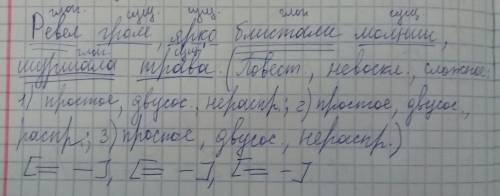 глаг. сущ. сущ. глаг. сущ.
Ревел гром, ярко блистали молнии,
глаг. сущ.
шуршала трава. (Повест., невоскл., сложное:
1) простое, двусос., нераспр.; 2) простое, двусос.,
распр.; 3) простое, двусос., нераспр.)
[= −], [= −], [= −]